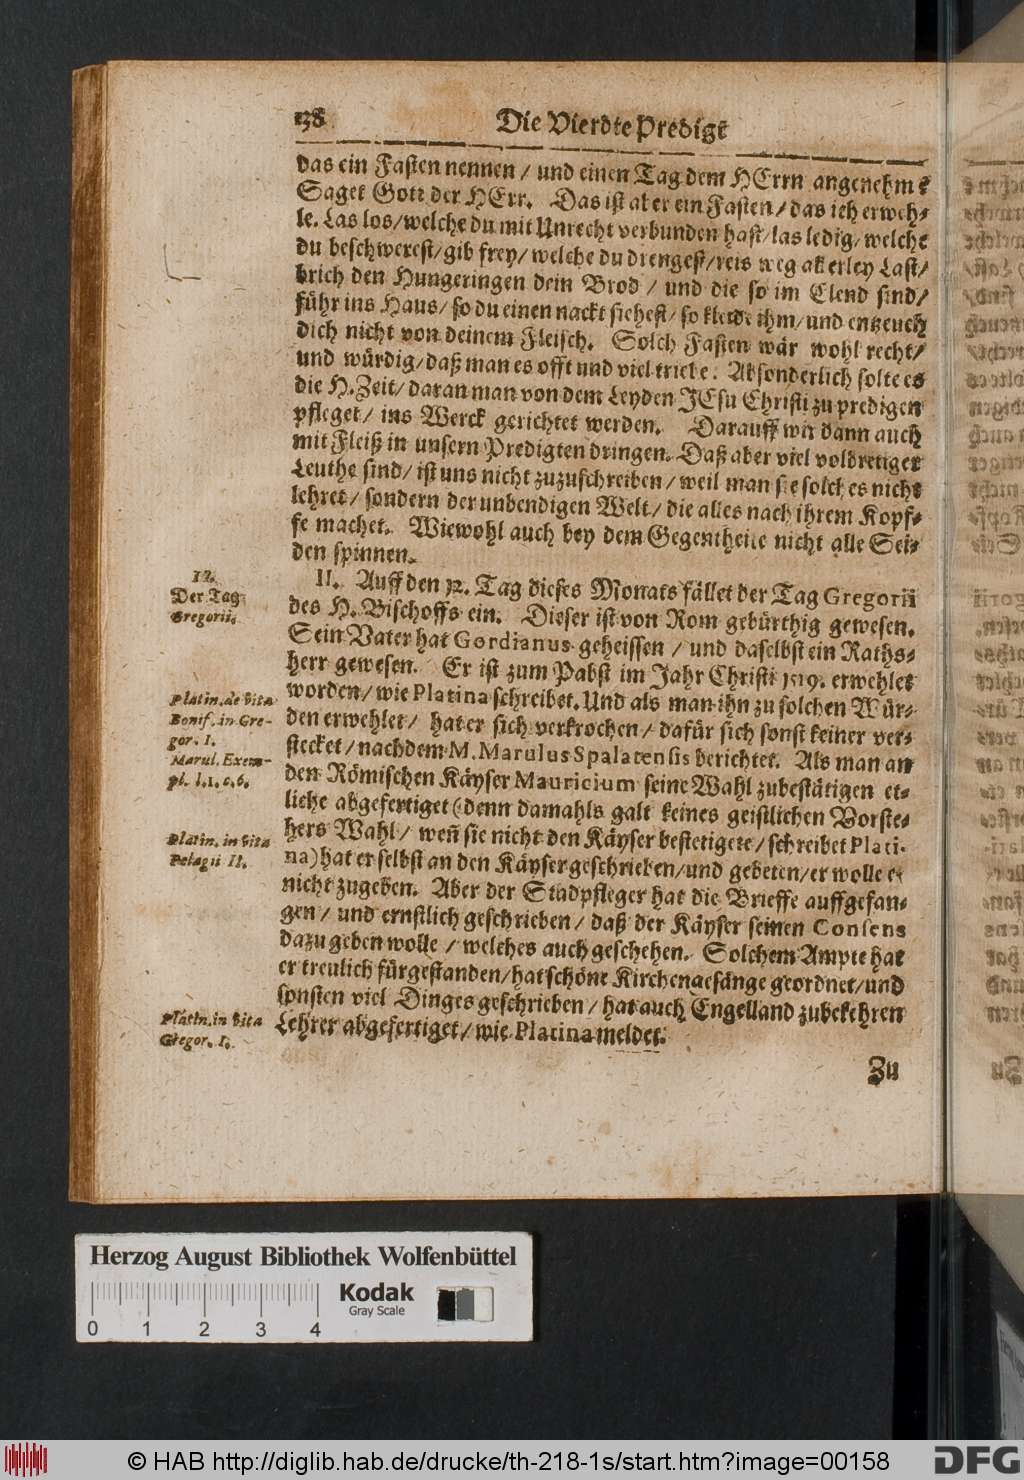 138 Die Vierdte Predigt
das ein Fasten nennen / und einen Tag dem HErrn angenehm?
Saget Gott der HErr. Das ist aber ein Fasten / das ich erweh-
le. Las los / welche du mit Unrecht verbunden hast / las ledig / welche
du beschwerest / gib frey / welche du drengest / reis weg allerley Last /
brich den Hungeringen dein Brod / und die so im Elend sind /
führ ins Haus / so du einen nackt siehest / so kleide ihm / und entzeuch
dich nicht von deinem Fleisch. Solch Fasten wär wohl recht /
und würdig / daß man es offt und viel triebe. Absonderlich solte es
die H. Zeit / daran man von dem Leyden JEsu Christi zu predigen
pfleget / ins Werck gerichtet werden. Darauff wir dann auch
mit Fleiß in unsern Predigten dringen. Daß aber viel voldretiger
Leuthe sind / ist uns nicht zuzuschreiben / weil man sie solches nicht
lehret / sondern der unbendigen Welt / die alles nach ihrem Kopf-
fe machet. Wiewohl auch bey dem Gegentheile nicht alle Sei-
den spinnen.
12.
Der Tag
Gregorii.
II. Auff den 12. Tag dieses Monats fället der Tag Gregorii
des H. Bischoffs ein. Dieser ist von Rom gebürthig gewesen.
Sein Vater hat Gordianus geheissen / und daselbst ein Raths-
herr gewesen. Er ist zum Pabst im Jahr Christi 1519. erwehlet
worden / wie Platina schreibet. Und als man ihn zu solchen Wür-
den erwehlet / hat er sich verkrochen / dafür sich sonst keiner ver-
stecket / nachdem M. Marulus Spalatensis berichtet. Als man an
den Römischen Käyser Mauricium seine Wahl zubestätigen et-
liche abgefertiget (denn damahls galt keines geistlichen Vorste-
hers Wahl / weñ sie nicht den Käyser bestetigete / schreibet Plati-
na) hat er selbst an den Käyser geschrieben / und gebeten / er wolle es
nicht zugeben. Aber der Stadpfleger hat die Brieffe auffgefan-
gen / und ernstlich geschrieben / daß der Käyser seinen Consens
dazu geben wolle / welches auch geschehen. Solchem Ampte hat
er treulich fürgestanden / hat schöne Kirchengesänge geordnet / und
sonsten viel Dinges geschrieben / hat auch Engelland zubekehren
Lehrer abgefertiget / wie Platina meldet.
Platin. de vita
Bonif. in Gre-
gor. I.
Marul. Exem-
pl. l. 1. c. 6.
Platin. in vita
Pelagii II.
Platin. in vita
Gregor. I.
Zu
Herzog August Bibliothek Wolfenbüttel
Kodak
Gray Scale
0 1 2 3 4
© HAB http://diglib.hab.de/drucke/th-218-1s/start.htm?image=00158
DFG